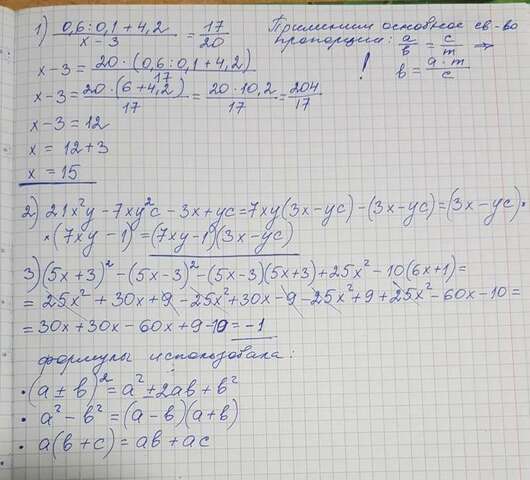 1) (0,6:0,1+4,2)/(x-3) = 17/20 Применим основное св-во
пропорции: a/b = c/m ⇒
x-3 = 20·(0,6:0,1+4,2)/17 ! b = a·m/c
x-3 = 20·(6+4,2)/17 = 20·10,2/17 = 204/17
x-3 = 12
x = 12+3
x = 15
2) 21x²y - 7xy²c - 3x + yc = 7xy(3x-yc) - (3x-yc) = (3x-yc)·
×(7xy-1) = (7xy-1)(3x-yc)
3) (5x+3)² - (5x-3)² - (5x-3)(5x+3) + 25x² - 10(6x+1) =
= 25x² + 30x + 9 - 25x² + 30x - 9 - 25x² + 9 + 25x² - 60x - 10 =
= 30x + 30x - 60x + 9 - 10 = -1
формулы использовала:
· (a ± b)² = a² ± 2ab + b²
· a² - b² = (a-b)(a+b)
· a(b+c) = ab + ac